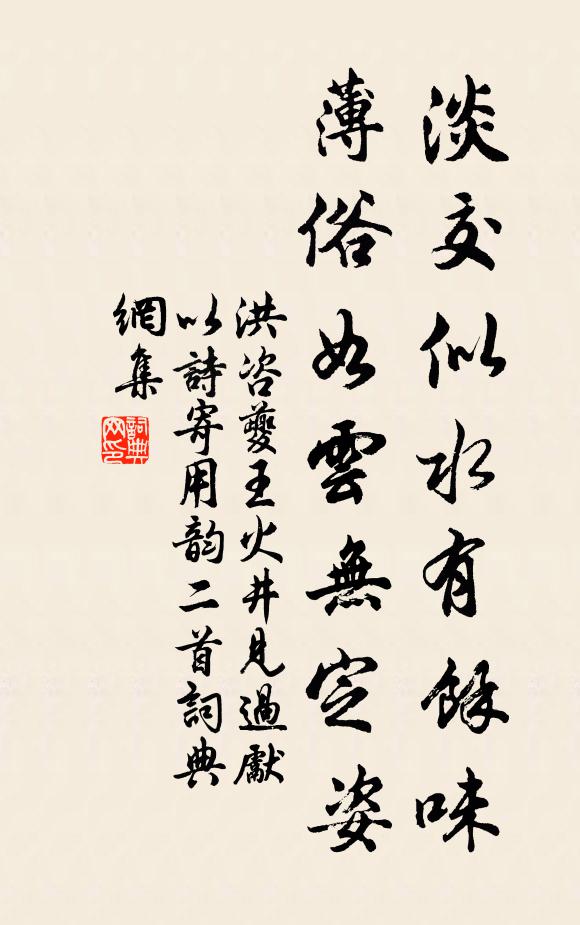 淡交似水有餘味
薄俗如雲無定姿
洪咨夔王火井見過獻
以詩寄用韵二首詞典
網集
詞典網印